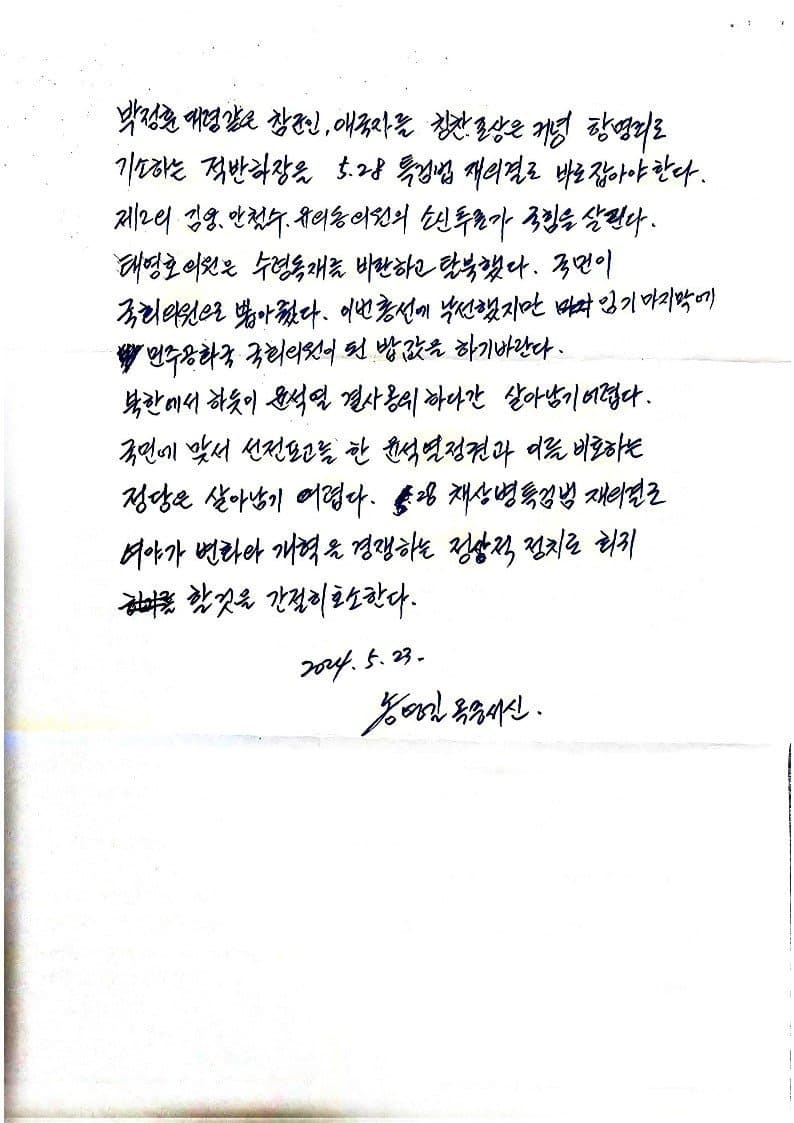 박정훈대령같은 참군인, 애국자를 칭찬.포상은 커녕 항명죄로
기소하는 적반하장을 5.28 특검법 재의결로 바로잡아야한다.
제2의 김웅.안철수.유의동의원의 소신투표가 국힘을 살린다.
태영호의원은 수령독재를 비판하고 탈북했다. 국민이
국회의원으로 뽑아줬다. 이번총선에 낙선했지만 임기마지막에
민주공화국 국회의원이 된 밥값을 하기바란다.
북한에서 하듯이 윤석열 결사옹위 하다간 살아남기어렵다.
국민에 맞서 선전포고를 한 윤석열정권과 이를 비호하는
정당은 살아남기 어렵다. 5.28 채상병특검법 재의결로
여야가 변화와 개혁을 경쟁하는 정상적 정치로 회귀
할것을 간절히호소한다.
2024. 5. 23.
송영길 옥중서신.